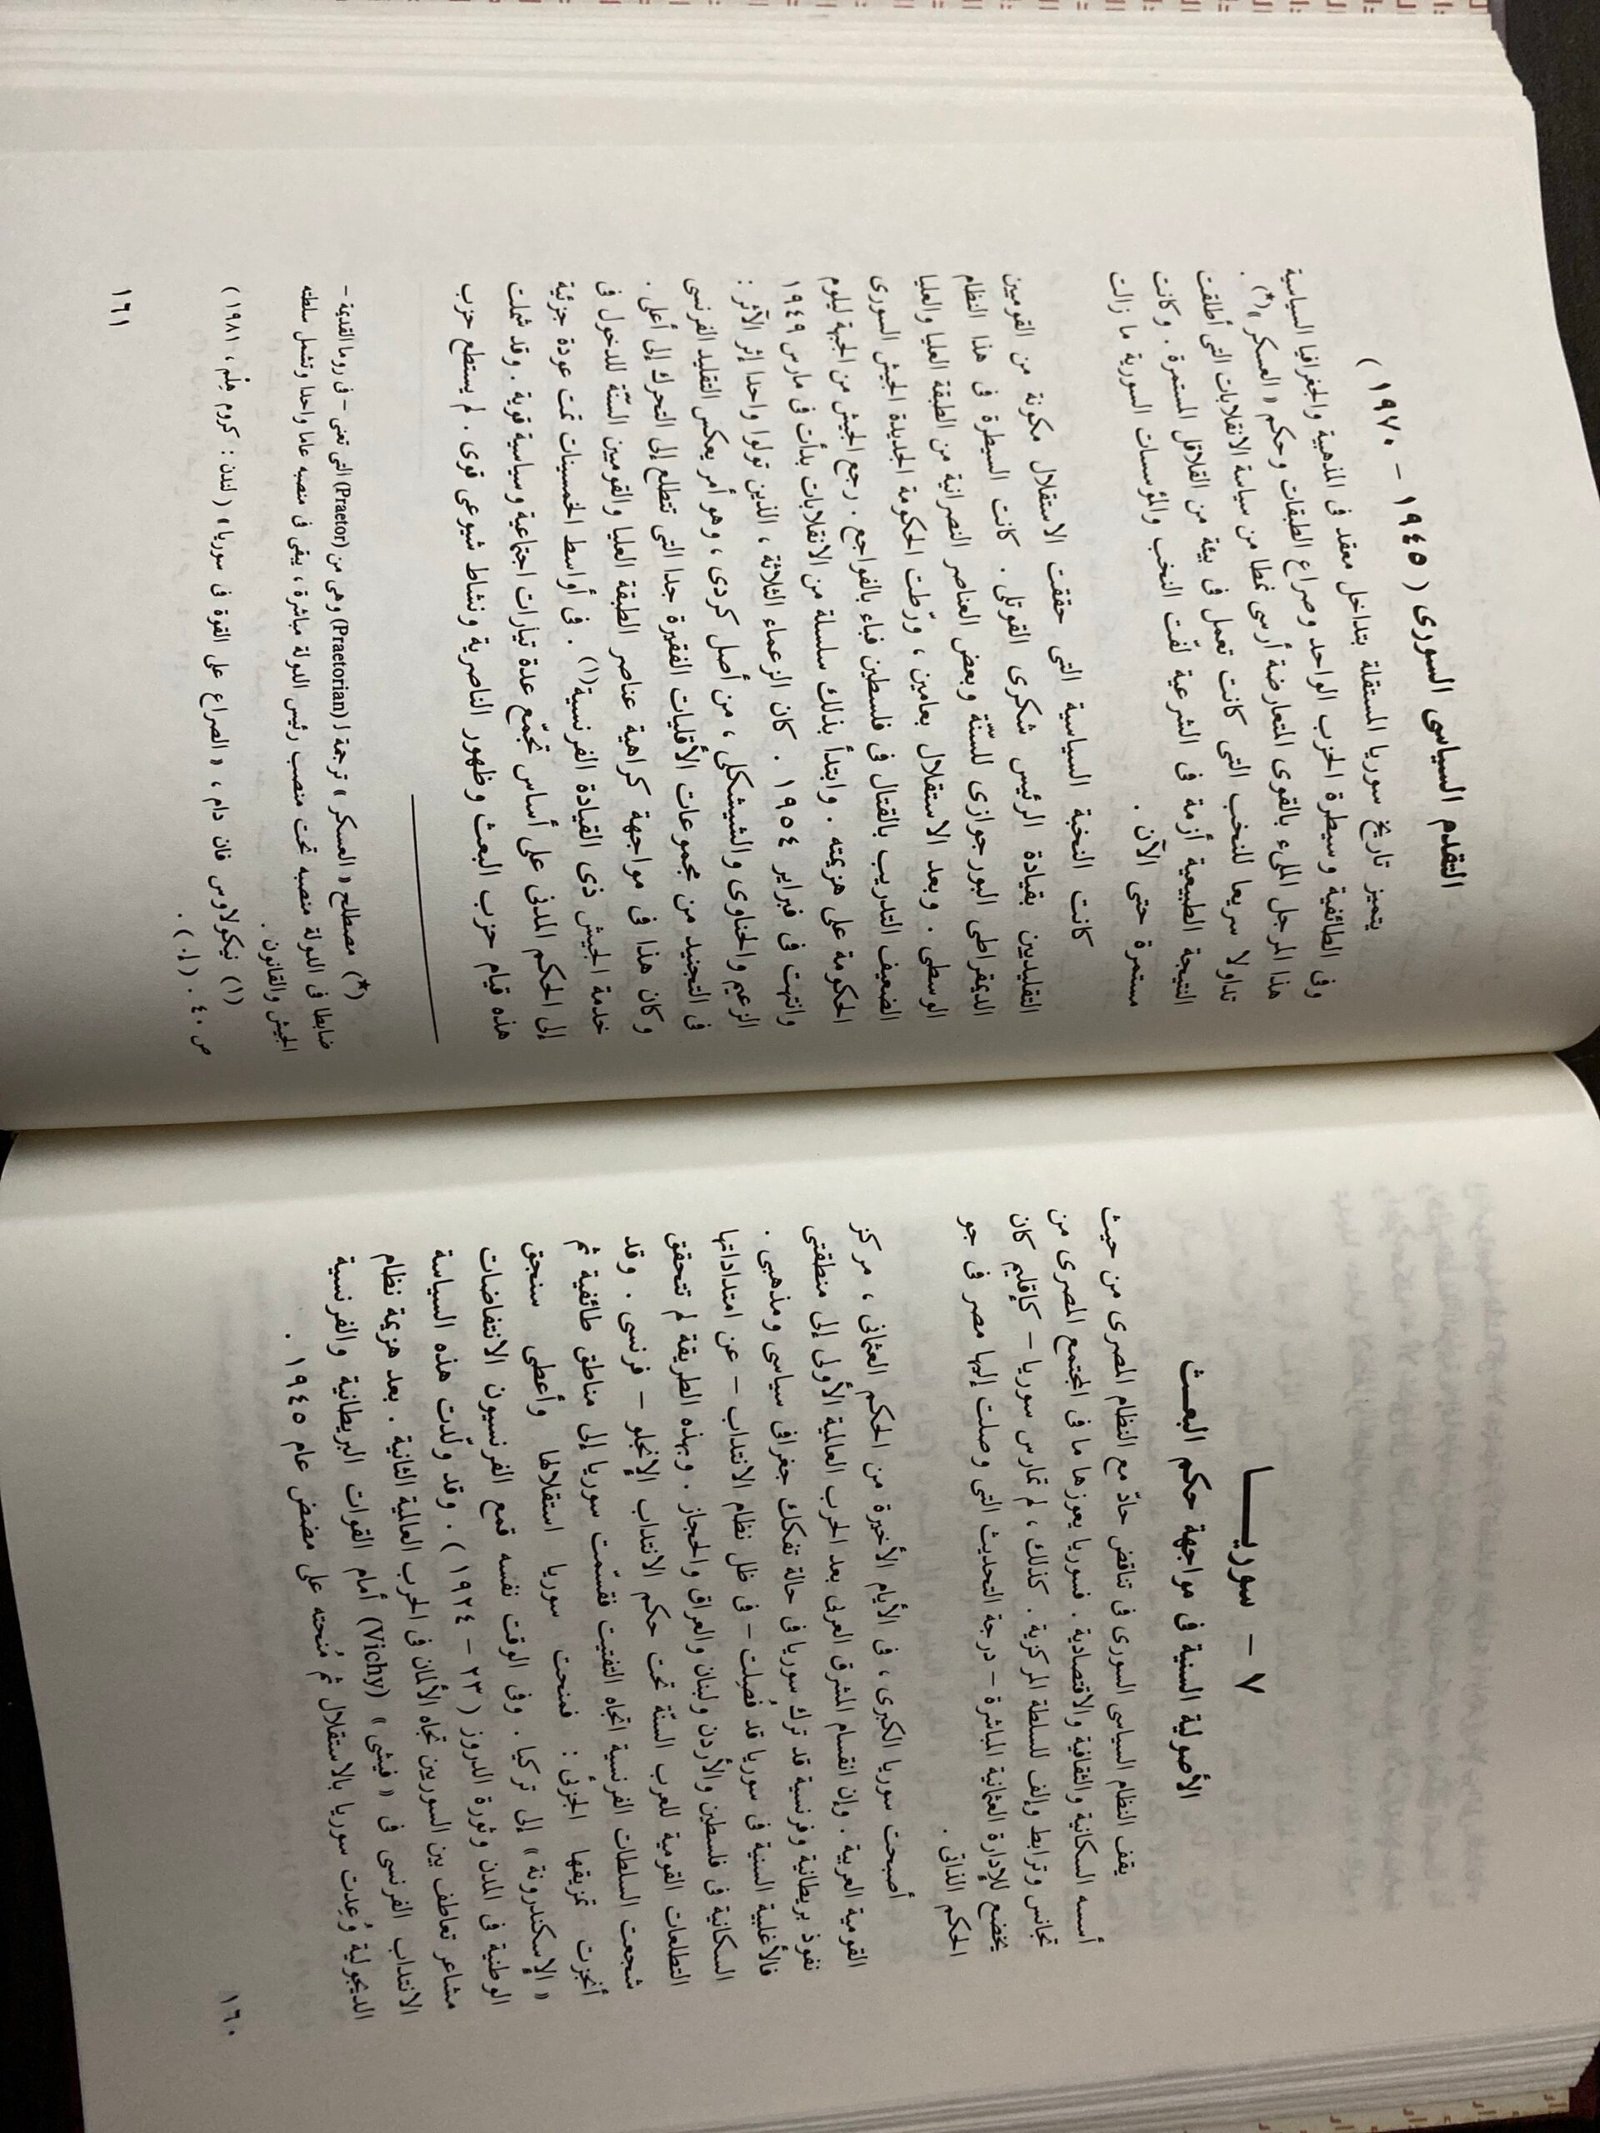 ٧ – سوريــــا
الأصولية السنية فى مواجهة حكم البعث
يقف النظام السياسى السورى فى تناقض حادّ مع النظام المصرى من حيث
أسسه السكانية والثقافية والاقتصادية . فسوريا يعوزها ما فى المجتمع المصرى من
تجانس وترابط وإلف للسلطة المركزية . كذلك ، لم تمارس سوريا – كإقليم كان
يخضع للإدارة العثمانية المباشرة – درجة التحديث التى وصلت إليها مصر فى جو
الحكم الذاتى .
أصبحت سوريا الكبرى ، فى الأيام الأخيرة من الحكم العثمانى ، مركز
القومية العربية . وإن انقسام المشرق العربى بعد الحرب العالمية الأولى إلى منطقتى
نفوذ بريطانية وفرنسية قد ترك سوريا فى حالة تفكك جغرافى سياسى ومذهبى .
فالأغلبية السنية فى سوريا قد فُصِلت – فى ظل نظام الانتداب – عن امتداداتها
السكانية فى فلسطين والأردن ولبنان والعراق والحجاز . وبهذه الطريقة لم تتحقق
التطلعات القومية للعرب السنّة تحت حكم الانتداب الإنجلو – فرنسى . وقد
شجعت السلطات الفرنسية اتجاه التفتيت فقسّمت سوريا إلى مناطق طائفية ثم
أنجزت تمزيقها الجزئى : فمنحت سوريا استقلالها وأعطى سنجق
« الإسكندرونة » إلى تركيا . وفى الوقت نفسه قمع الفرنسيون الانتفاضات
الوطنية فى المدن وثورة الدروز ( ٢٣ – ١٩٢٤ ) . وقد ولّدت هذه السياسة
مشاعر تعاطف بين السوريين تجاه الألمان فى الحرب العالمية الثانية . بعد هزيمة نظام
الانتداب الفرنسى فى « فيشى » (Vichy) أمام القوات البريطانية والفرنسية
الديجولية وُعِدت سوريا بالاستقلال ثم مُنحته على مضض عام ١٩٤٥ .
١٦٠
التقدم السياسى السورى ( ١٩٤٥ – ١٩٧٠ )
يتميز تاريخ سوريا المستقلة بتداخل معقد فى المذهبية والجغرافيا السياسية
وفى الطائفية وسيطرة الحزب الواحد وصراع الطبقات وحكم « العسكر »(*) .
هذا المرجل الملىء بالقوى المتعارضة أرسى نمطا من سياسة الانقلابات التى أطلقت
تداولا سريعا للنخب التى كانت تعمل فى بيئة من القلاقل المستمرة . وكانت
النتيجة الطبيعية أزمة فى الشرعية لفّت النخب والمؤسسات السورية ما زالت
مستمرة حتى الآن .
كانت النخبة السياسية التى حققت الاستقلال مكونة من القوميين
التقليديين بقيادة الرئيس شكرى القوتلى . كانت السيطرة فى هذا النظام
الديمقراطى البورجوازى للسنّة وبعض العناصر النصرانية من الطبقة العليا والعليا
الوسطى . وبعد الاستقلال بعامين ، ورّطت الحكومة الجديدة الجيش السورى
الضعيف التدريب بالقتال فى فلسطين فباء بالفواجع . رجع الجيش من الجبهة ليلوم
الحكومة على هزيمته . وابتدأ بذلك سلسلة من الانقلابات بدأت فى مارس ١٩٤٩
وانتهت فى فبراير ١٩٥٤ . كان الزعماء الثلاثة ، الذين تولوا واحدا إثر الآخر :
الزعيم والحناوى والشيشكلى ، من أصل كردى ، وهو أمر يعكس التقليد الفرنسى
فى التجنيد من مجموعات الأقليات الفقيرة جدا التى تتطلع إلى التحرك إلى أعلى .
وكان هذا فى مواجهة كراهية عناصر الطبقة العليا والقوميين السنّة للدخول فى
خدمة الجيش ذى القيادة الفرنسية(١) . فى أواسط الخمسينات تمت عودة جزئية
إلى الحكم المدنى على أساس تجمّع عدة تيارات اجتماعية وسياسية قوية . وقد شملت
هذه قيام حزب البعث وظهور الناصرية ونشاط شيوعى قوى . لم يستطع حزب
(*) مصطلح « العسكر » ترجمة لـ (Praetorian) وهى من (Praetor) التى تعنى – فى روما القديمة –
ضابطا فى الدولة منصبه تحت منصب رئيس الدولة مباشرة ، يبقى فى منصبه عاما واحدا وتشمل سلطته
الجيش والقانون .
(١) نيكولاوس فان دام ، « الصراع على القوة فى سوريا » ( لندن : كروم هِلْم ، ١٩٨١ )
ص ٤٠ . ( إ. ) .
١٦١